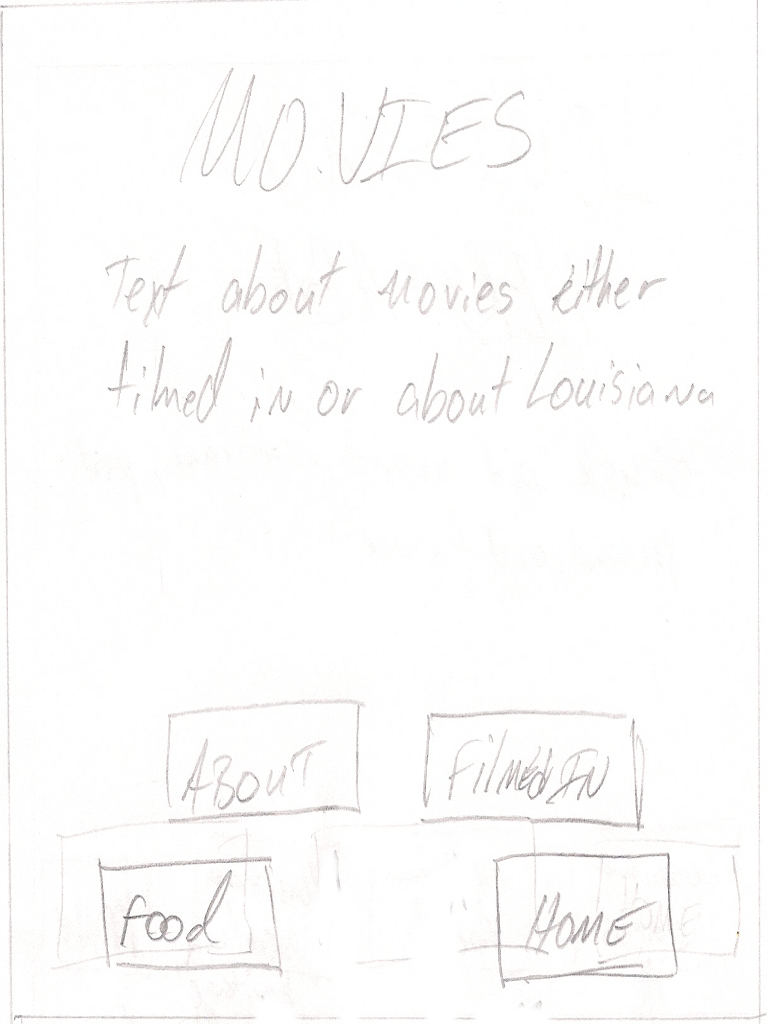 MOVIES
Text about Movies either
filmed in or about Louisiana
ABOUT
FilmedIN
Food
HOME